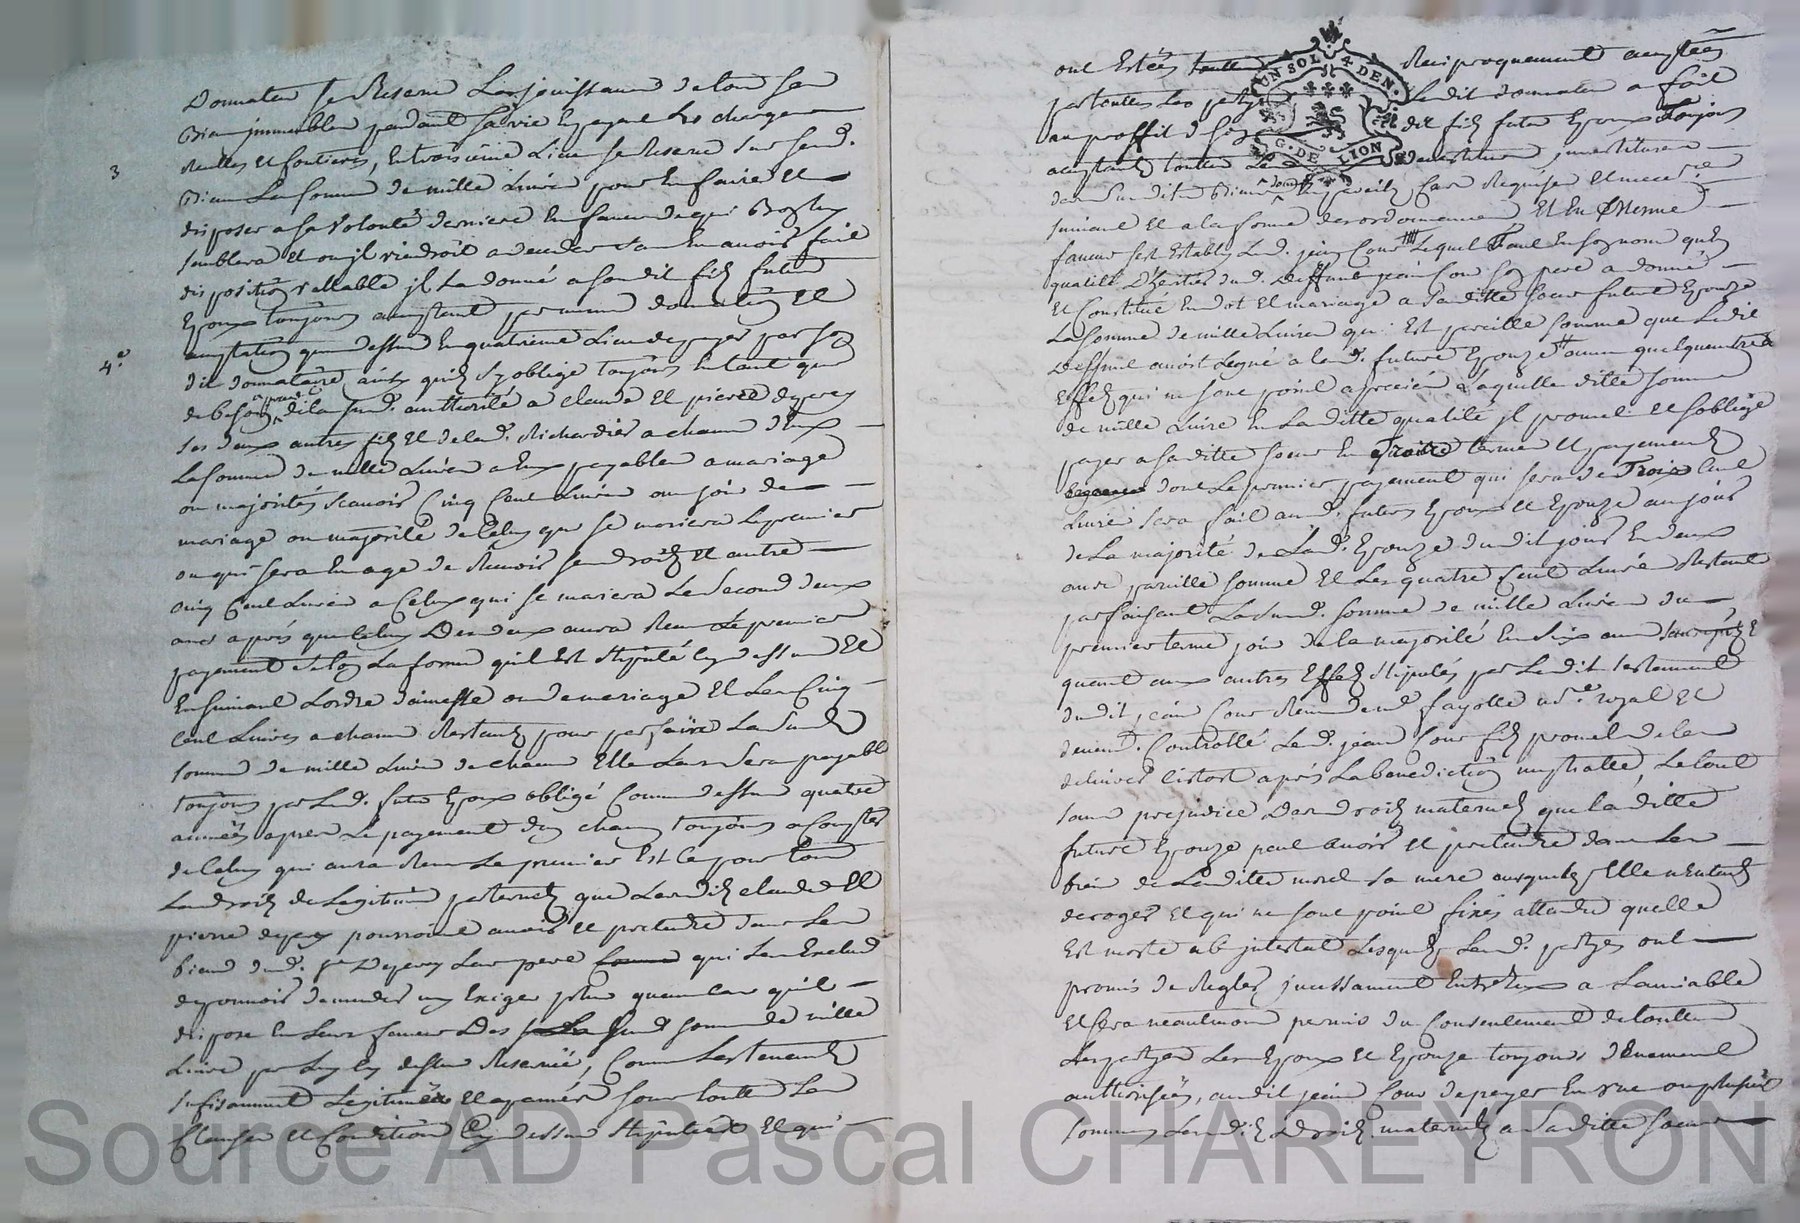 Donnateur se Reserve La jouissance de tous ses
Biens immeubles pendant sa vie En payant les charges
3
Reelles et foncieres, En troisieme Lieu se Reserve sur sesd.
Biens La somme de mille Livres pour En faire et
disposer a sa Volonté derniere En faveur de qui Bon luy
semblera Et ou il viendroit a deceder sans En avoir fait
disposition vallable il La donné a son dit fils futur
Epoux toujours acceptant par meme donnation Et
acceptation que dessus En quatrieme Lieu de payer par son
4.e
dit donnataire, ainsy quil sy oblige toujours En tant que
de besoin de la susd. authorité a claude Et pierre
ses deux autres fils Et de lad. Richardier a chacun d'Eux
La somme de mille Livres a Eux payables a mariage
ou majorités scavoir Cinq Cent Livres au jour de
mariage ou majorité de Celuy qui se mariera Le premier
ou qui sera En age de Recevoir ses droits Et autre
cinq Cent Livres a Celuy qui se mariera Le second deux
ans après que Celuy Des deux aura Receu Le premier
payement selon La forme quil Est stipulé cy dessus Et
En suivant Lordre dainesse ou de mariage Et Les Cinq
Cent Livres a chacun Restants pour parfaire La susd.
somme de mille Livres de chacun Elle Leur sera payable
toujours par Led. futur Epoux obligé Comme dessus quatre
années apres Le payement d'un chacun toujours a Compter
de Celuy qui aura Receu Le premier Et Ce pour tous
Les droits de Legitime paternels que Lesdits claude Et
pierre pourroient avoir Et pretendre dans Les
biens dud. Leur pere qui Les Exclud
de pouvoir demander ny Exiger plus quen Cas quil
dispose En Leurs faveur Des susd somme de mille
Livres par Luy Cy dessus Reservée, Comme Les tenants
sufisamment Legitimés Et apanés sous toutes Les
Clauses Et Conditions Cy dessus stipulées Et qui
ont Estées Reciproquement acceptées
UN SOL 4 DEN.
G. DE LION
par toutes Les partyes Ledit donnateur a fait
au proffit d dit fils futur Epoux toujours
acceptant toutes Les devestitures investitures
dans susdits Biens En pareils Cas Requises Et necess.res
suivant Et a la forme des ordonnances Et En Memme
faveur sest Establi Led. jean Cour Lequel tant En son nom quen
qualité D'heritier dud. Deffunt jean Cour son pere a donné
Et Constitué En dot Et mariage a sa ditte soeur future Epouze
La somme de mille Livres qui Est pareille somme que Ledit
Deffunt avoit Legué a lad. future Epouze avec quelques
Effets qui ne sont point apreciés Laquelle ditte somme
de mille Livres En La ditte qualité il promet Et soblige
payer a sa ditte soeur En trois termes Et payements
dont Le premier payement qui sera de Trois Cent
Livres sera fait aud. futurs Epoux Et Epouze au jour
de La majorité de Lad. Epouze dudit jour En deux
ans pareille somme Et Les quatre Cent Livres Restant
parfaisant La susd. somme de mille Livres du
premier terme jour de la majorité En six ans
quant aux autres Effets stipulés par Ledit testament
dudit jean Cour Receu de m.e fayolle no.re royal Et
deuem.t Controllé Led. jean Cour fils promet de les
delivrer Listost après La benediction nuptialle, Le tout
sans prejudice Des droits maternels que La ditte
future Epouze peut avoir Et pretendre dans Les
biens de La ditte morel sa mere auxquels Elle n'Entend
deroger Et qui ne sont point fixés attendu quelle
Est morte ab intestat Lesquels Lesd. partyes ont
promis de Regler incessament Entr'Eux a Lamiable
Et sera neanmoins permis du Consentement de toutes
Les partyes Les Epoux Et Epouze toujours dument
authorisés, audit jean Cour de payer En une ou plusieurs
sommes Lesdits Droits maternels a sa ditte soeur
Source AD Pascal CHAREYRON